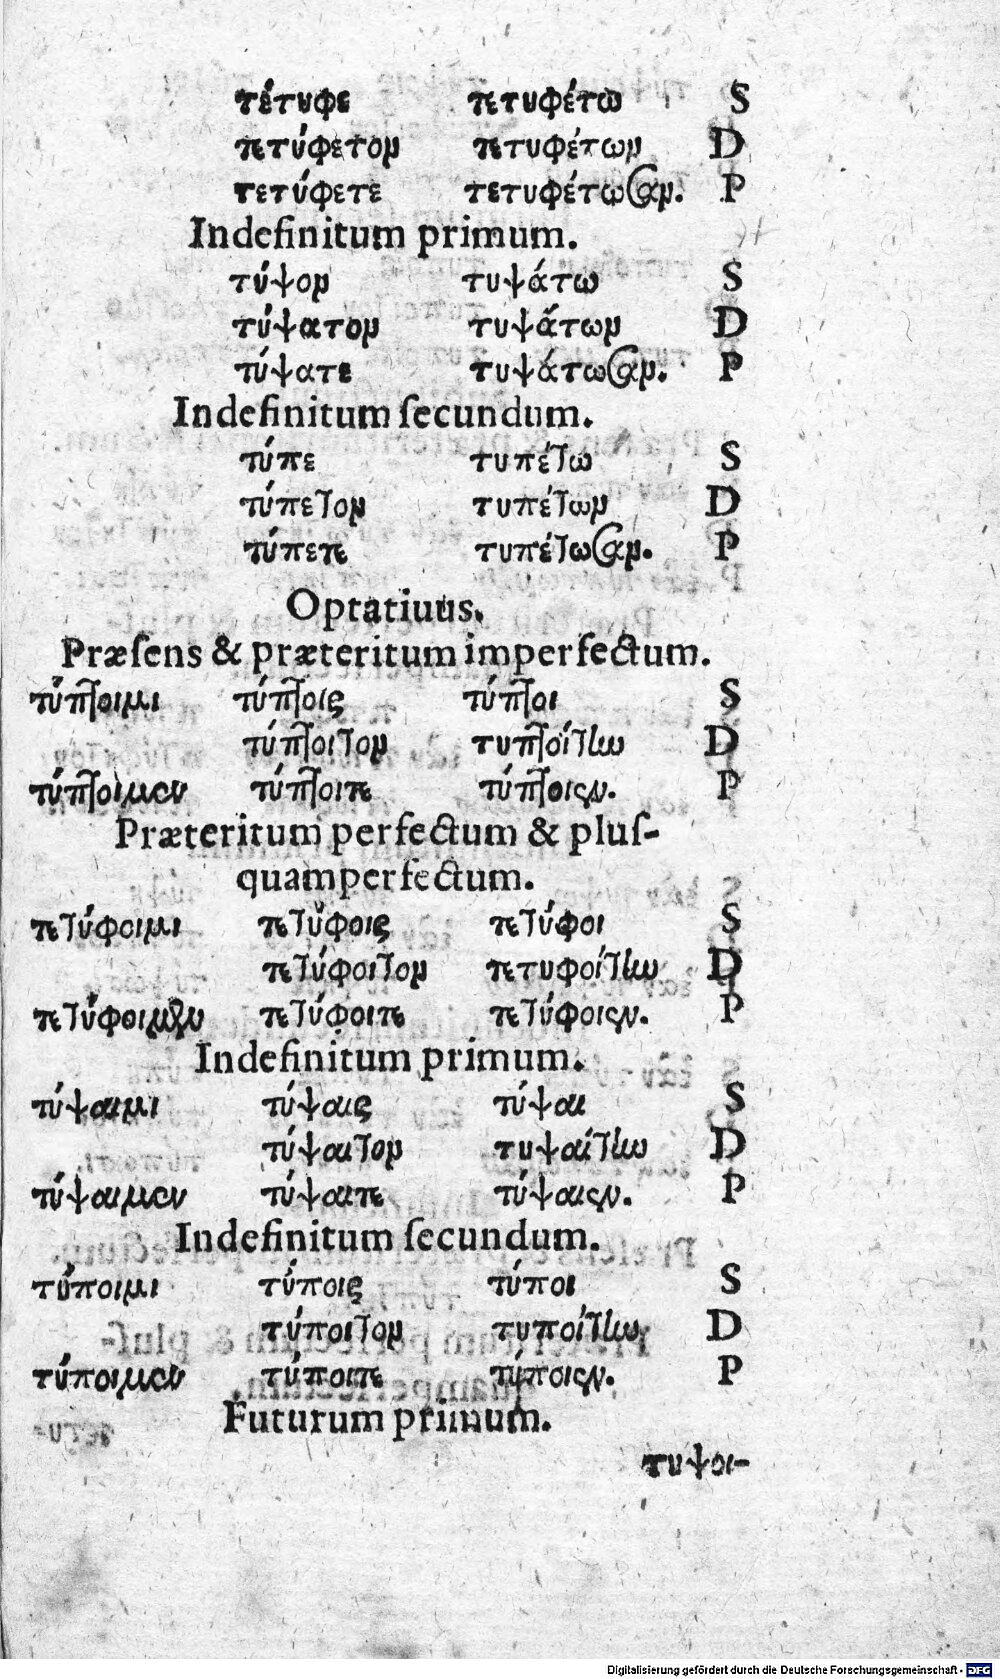 τέτυφε τετυφέτω S
τετύφετον τετυφέτων D
τετύφετε τετυφέτωσαν. P
Indefinitum primum.
τύψον τυψάτω S
τύψατον τυψάτων D
τύψατε τυψάτωσαν. P
Indefinitum ſecundum.
τύπε τυπέτω S
τύπετον τυπέτων D
τύπετε τυπέτωσαν. P
Optatiuus.
Præſens & præteritum imperfectum.
τύπτοιμι τύπτοις τύπτοι S
τύπτοιτον τυπτοίτην D
τύπτοιμεν τύπτοιτε τύπτοιεν. P
Præteritum perfectum & pluſ-
quamperfectum.
τετύφοιμι τετύφοις τετύφοι S
τετύφοιτον τετυφοίτην D
τετύφοιμεν τετύφοιτε τετύφοιεν. P
Indefinitum primum.
τύψαιμι τύψαις τύψαι S
τύψαιτον τυψαίτην D
τύψαιμεν τύψαιτε τύψαιεν. P
Indefinitum ſecundum.
τύποιμι τύποις τύποι S
τύποιτον τυποίτην D
τύποιμεν τύποιτε τύποιεν. P
Futurum primum.
τυψοι-
Digitalisierung gefördert durch die Deutsche Forschungsgemeinschaft - DFG